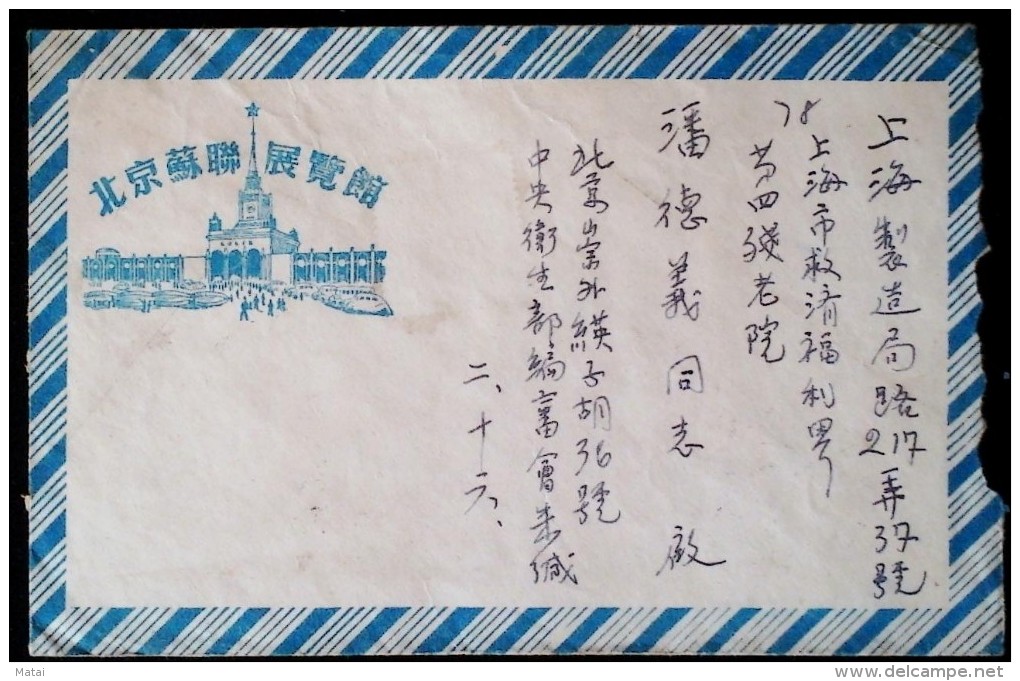 北京蘇聯展覽館
上海製造局路217弄37號
上海市救濟福利界
78
第四殘老院
潘德義同志 啟
北京崇外纓子胡36號
中央衛生部編審會朱緘
二、十六、
Matai
delcampe.net